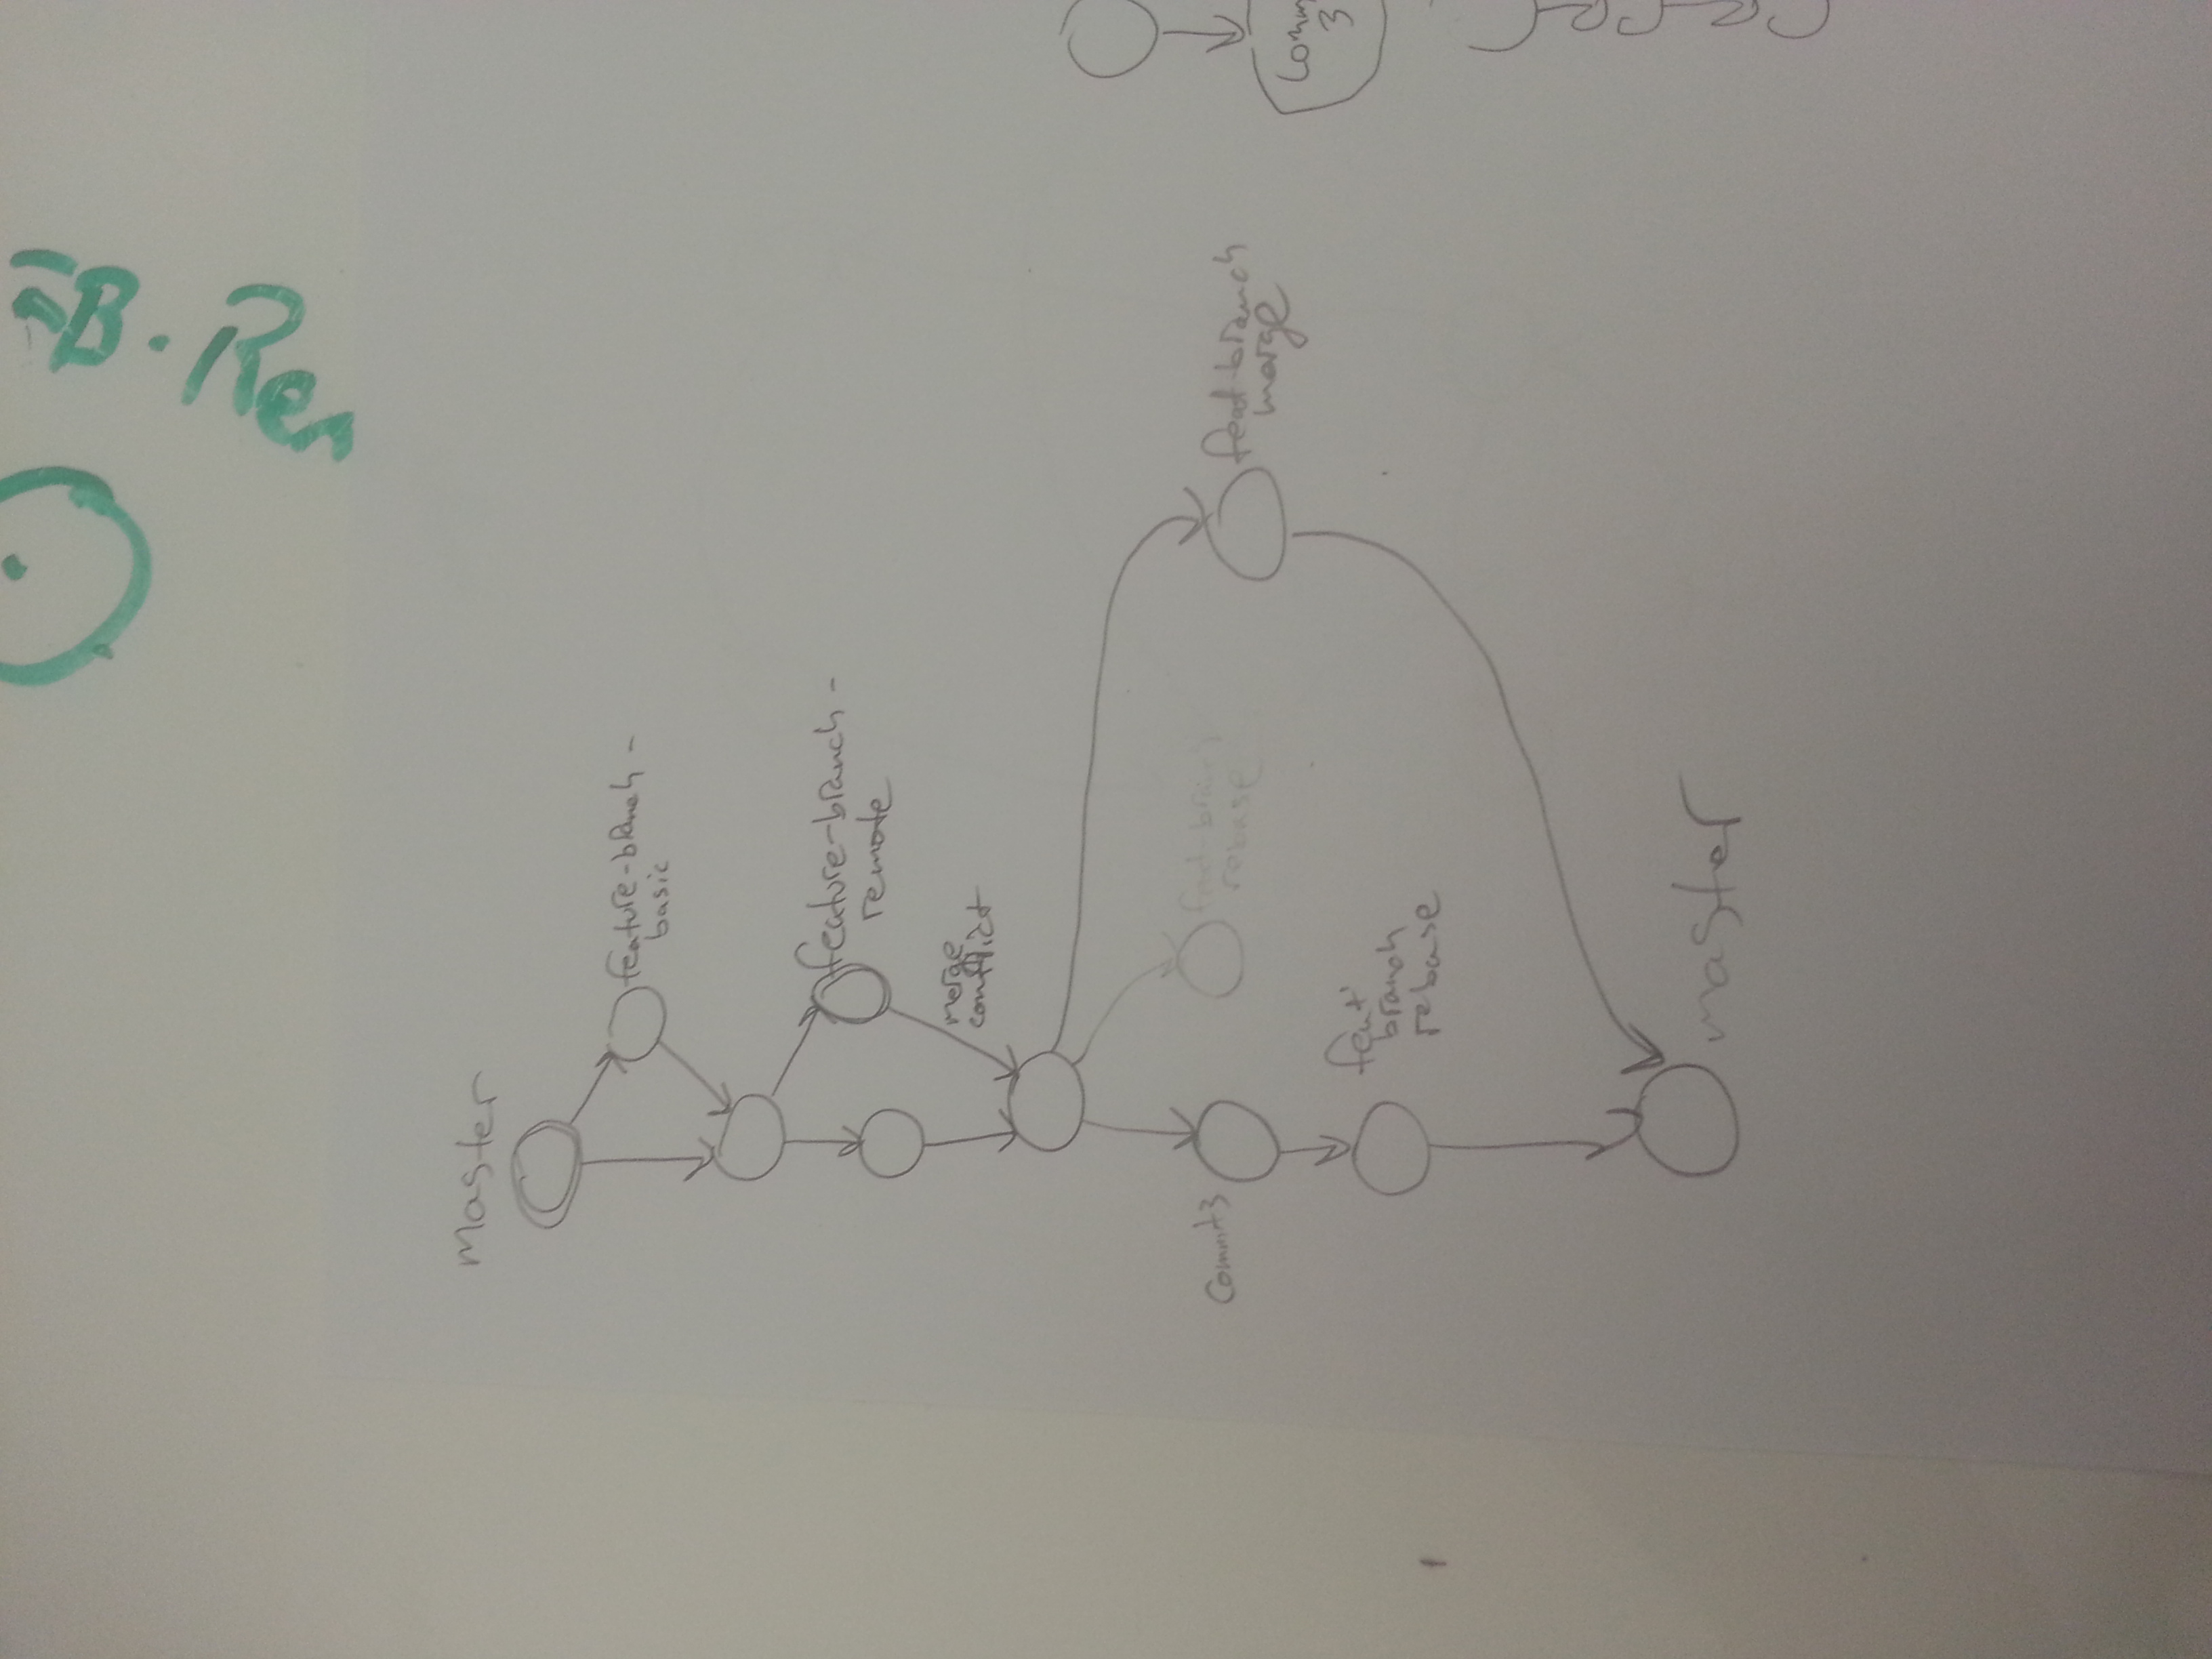 B. Rem
master
feature-branch-
basic
feature-branch-
remote
merge
conflict
feat-branch
merge
feat-branch
rebase
Commit3
feat
branch
rebase
master
3